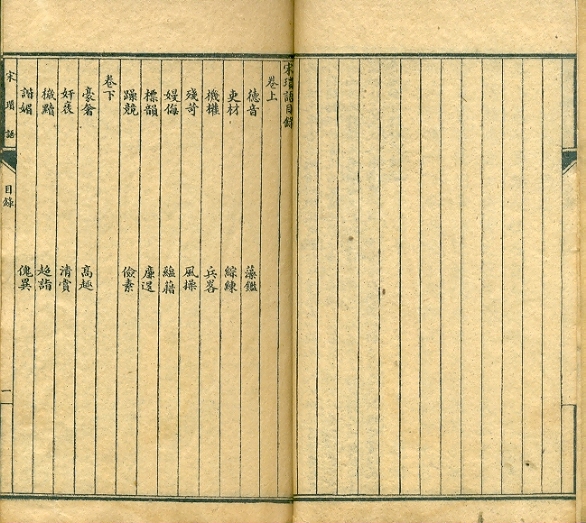 宋瑣語目錄
卷上
德音 藻鑑
吏材 綜練
機權 兵畧
殘苛 風操
嫚侮 蘊藉
標韻 廉退
躁競 儉素
卷下
豪奢 高趣
奸 清賞
黠 超詣
媚 傀異
宋瑣語 目錄 一